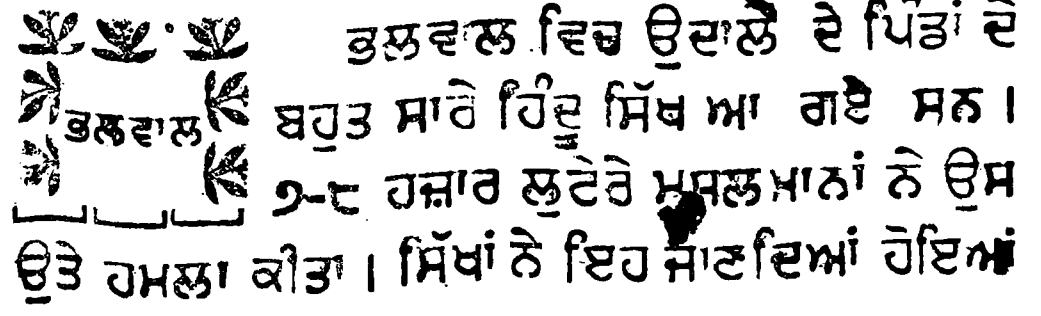 ਭਲਵਾਲ
ਭਲਵਾਲ ਵਿਚ ਉਦਾਲੇ ਦੇ ਪਿੰਡਾਂ ਦੇ
ਬਹੁਤ ਸਾਰੇ ਹਿੰਦੂ ਸਿੱਖ ਆ ਗਏ ਸਨ ।
੭-੮ ਹਜ਼ਾਰ ਲੁਟੇਰੇ ਮੁਸਲਮਾਨਾਂ ਨੇ ਉਸ
ਉਤੇ ਹਮਲਾ ਕੀਤਾ । ਸਿੱਖਾਂ ਨੇ ਇਹ ਜਾਣਦਿਆਂ ਹੋਇਆਂ